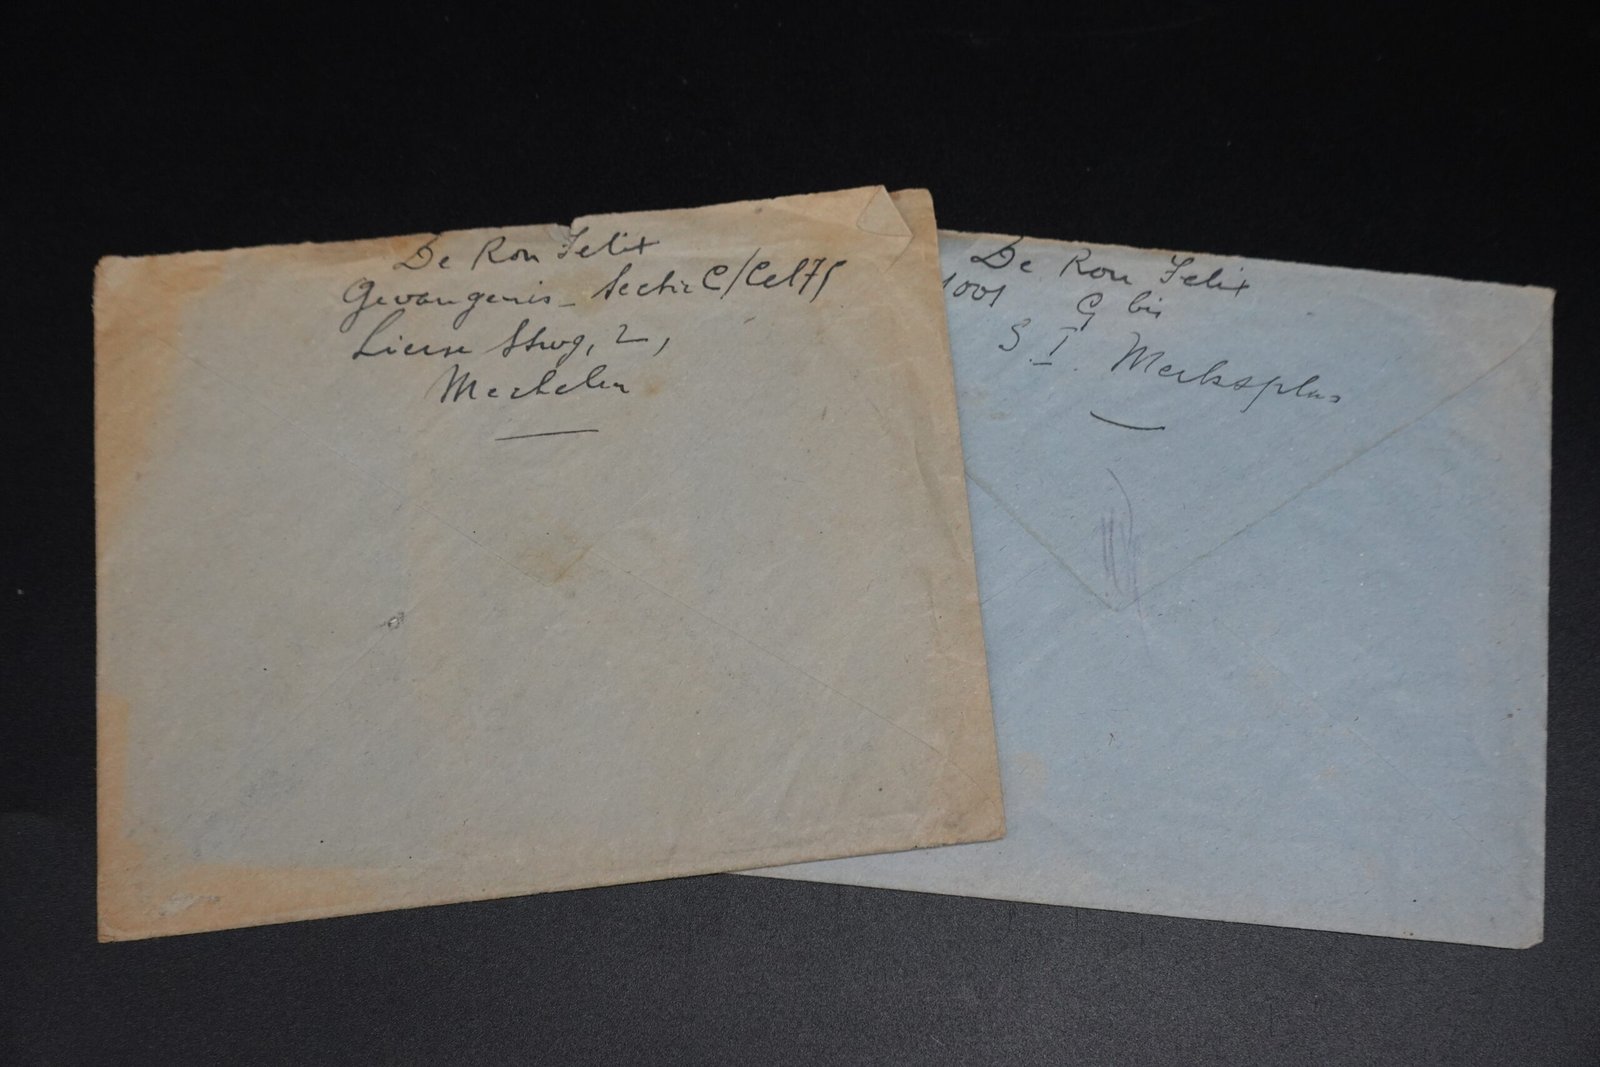 De Ron Felix
Gevangenis - Sectie C/Cel 75
Lierse Stwg, 2,
Mechelen
De Ron Felix
1001 G bis
S. I. Merksplas